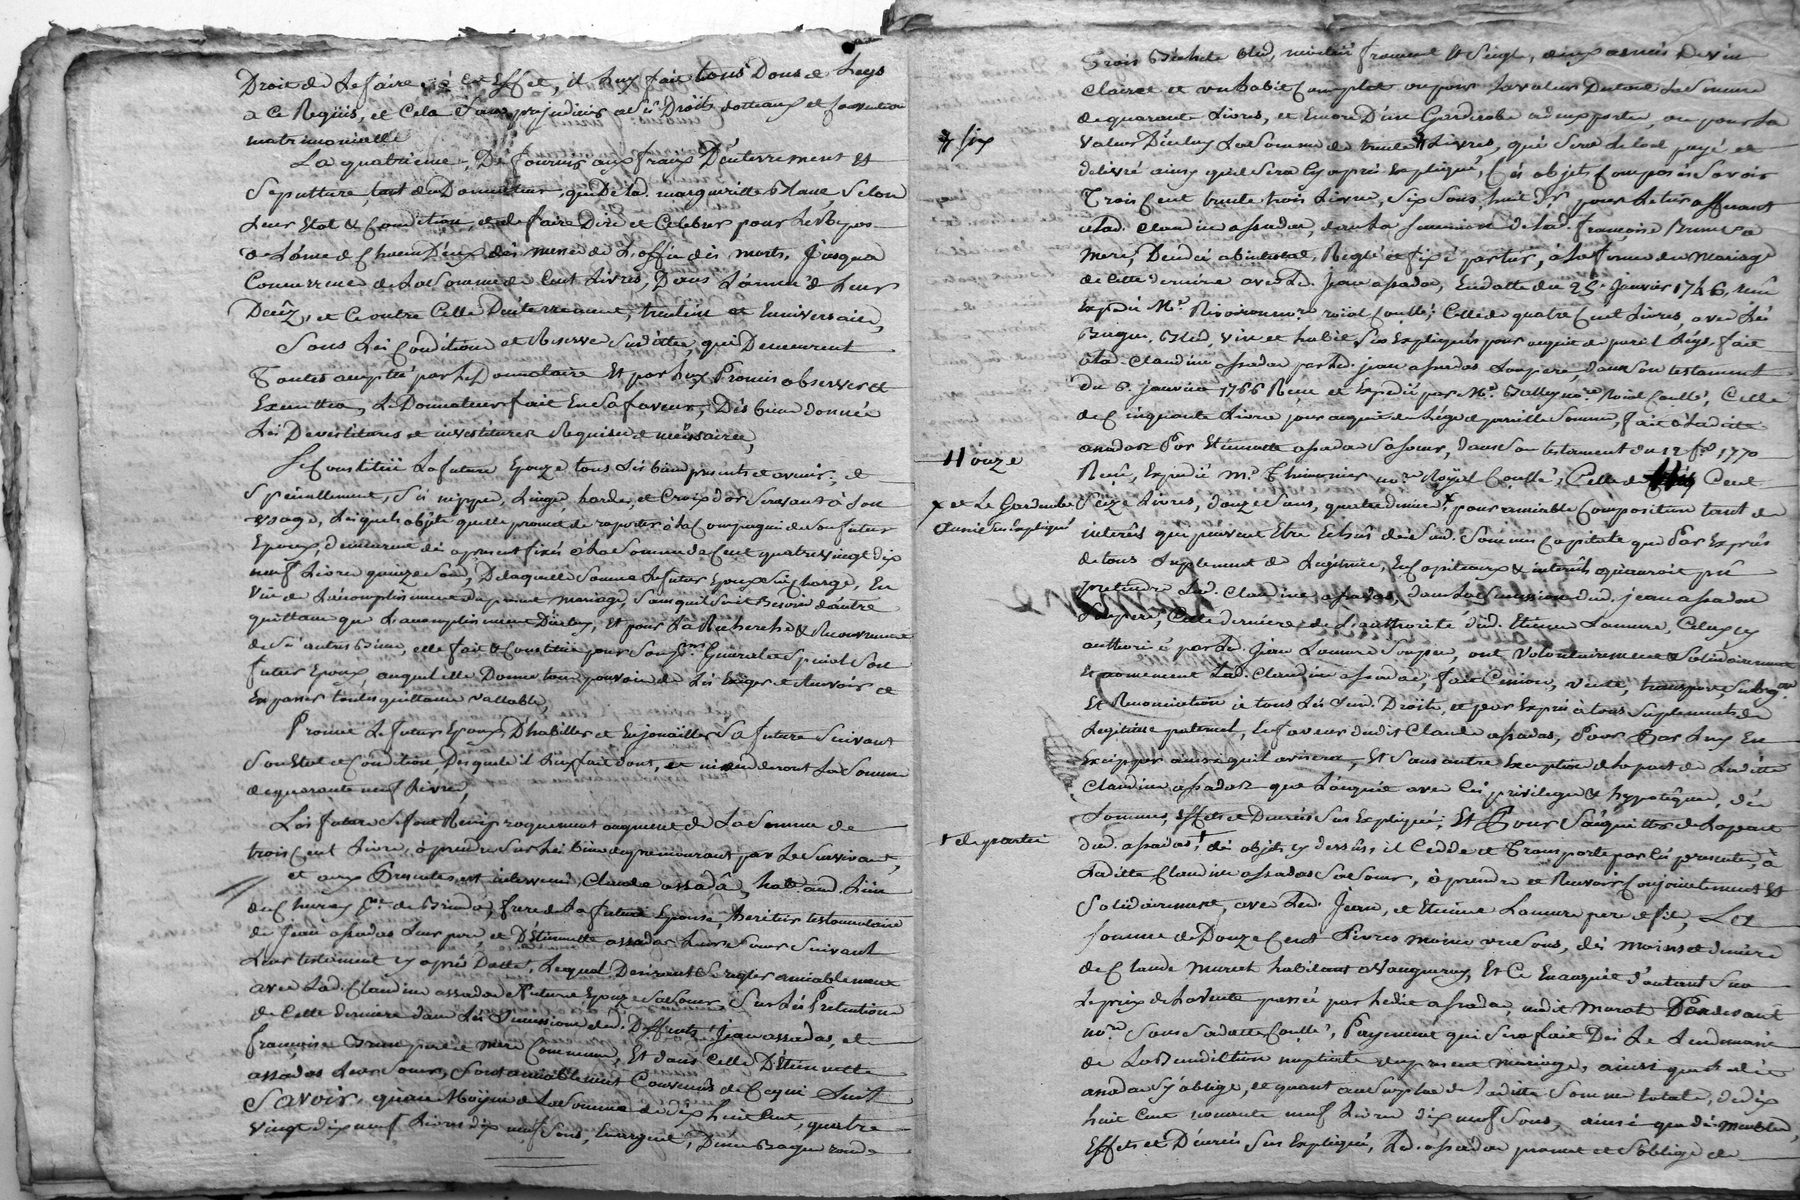 Droit de le faire, à cet Effet, il luy fait tous Dons & legs
a ce Requis, et Cela Sans prejudicier a Ses Droits dotteaux et convention
matrimonialle
La quatrieme, De fournir aux fraix D'enterrement et
Sepulture, tant du Donnateur, que De lad. margueritte Blanc, Selon
Leur Etat & Condition, et de faire Dire et Celebrer pour le Repos
de L'ame de Chacun D'eux des messes de L'office des morts, Jusqua
Concurrence de La Somme de Cent Livres, Dans L'année de Leur
Decez, et Ce outre Celle D'enterrement, trentine et Enniversaire,
Sous Les Condition et Reserve Susdittes, qui Demeurent
Toutes acceptée par le Donnataire Et par luy Promis observer et
Executter, Le Donnateur fait En Sa faveur, Des bien donnée
Les Devestitures et investitures Requise & necessaire,
Se Constitüe La future Epouze tous Ses bien presents et avenir, et
Specialement, Ses nippes, Linge, hardes, et Croix d'or Servants à Son
usage, Lesquels objets quelle promet de raporter à la Compagnie de Son futur
Epoux, demeurent dés apresent fixés à La Somme de Cent quatrevingt dix
neuf Livres quinze Sous, De laquelle Somme Le futur Epoux Se Charge, En
Vüe de L'accomplissement du present mariage, Sans quil Soit Besoin d'autre
quittance que L'accomplissement D'iceluy, Et pour La Recherche & Recouvrement
de Ses autres Biens, elle fait & Constitue pour Son Procureur General & Special Son
futur Epoux, auquel elle Donne tout pouvoir de Les Exiger et Recevoir et
En passer toutes quittance vallable,
Promet Le futur Epoux D'habiller et Enjoailler Sa future Suivant
Son Etat et Condition, Desquels il Luy fait dont, et n'excederont La Somme
de quarante neuf Livres,
Les futurs Se font Reciproquement augment de La Somme de
trois Cent Livres, à prendre Sur Les Biens du premourant par Le Survivant,
et aux Presentes est intervenû Claude assadâ, hab. aud. Lieu
de Chevray Psse de Brinda, frere de La future Epouse, heritier testamentaire
de Jean assadas Leur pere, et D'Etiennette assadas Leur Sœur Suivant
Leur testament cy après Datté, Lequel Desirant Se regler amiablement
avec Lad. Claudine assadas future Epouze Sa Sœur, Sur Les Pretention
de Cette derniere dans Les Succession desd. Deffunts Jean assadas, et
françoise Brun pere et mere Commun, Et dans Celle D'Etiennette
assadas Leur Sœur, Sont amiablement Convenûs de Cequi Suit
Savoir, quau Moyen de La Somme de dix huit Cent, quatre
vingt dix neuf Livres dix neuf Sous, En argent, D'une Bague ronde
Trois Bichets Bled, moitié froment & Seigle, deux asnées De vin
Clairet et un habit Complet ou pour La valeur Du tout La Somme
de quarante Livres, et Encore D'une Garderobe à emporter, ou pour La
* Six
Valeur D'iceluy La Somme de trente * Livres, qui Sera Le tout payé et
delivré ainsy quil Sera Cy après Expliqué, Ces objets Composés Savoir
Trois Cent trente trois Livres, Six Sous, huit Drs pour Le tiers assurant
à Lad. Claudine assadas, dans La Succession de Lad. françoise Brun Sa
Mere, Decedée abintestat, Reglé et fixé par tiers, à La forme du Mariage
de Cette derniere avec Led. Jean assadas, En datte du 25. Janvier 1746, reçû
Expedié Me. Revoiron nore roial Collé; Celle de quatre Cent Livres, avec Les
Bague, Bled, vin et habit, Sus Expliqués pour acquit de pareil Légs, fait
à Lad. Claudine assadas par led. jean assadas Son pere, dans Son testament
du 6. janvier 1766 Recu et Expedié par Me. Bally nore Roial Collé, Celle
de Cinquante Livres, pour acquit de Légs de pareille Somme, fait à Laditte
assadas Par Etiennette assadas Sa Sœur, dans Son testament du 12 fer 1770
11 onze
Reçû, Expedié Me. Thimonier nore Royal Collé; Celle de 11 Cent
* et Le Garderobe
aussi Sus Expliqué
Seize Livres, douze Sous, quatre denier * pour amiable Composition tant de
interêts qui peuvent Etre Echus desd. Sommes Capitale que Par Exprés
de tous Suplement de Legitime, En Capiteaux & interêts quauroit pû
pretendre Lad. Claudine assadas, dans La Succession dud. jean assadas
Son pere, Cette derniere de L'authorité dud. Etienne Lamure, Celuy cy
authorisé par Led. Jean Lamure Son pere, ont Volontairement & Solidairement
Et nomement Lad. Claudine assadas, fait Cession, vente, transport, Subrogon
Et Renonciation à tous Les Susd. Droits, et par Exprés à tous Suplements de
Legitime paternel, En faveur dudit Claude assadas, Pour Par Luy En
Exciper ainsi quil avisera, Et Sans autre Exception de la part de Laditte
Claudine assadas que L'acquit avec Les privilege & hypotéque, des
Sommes, Effets et Denrées Sus Expliqué; Et Pour S'acquitter de La part
* de partie
dud. assadas * des objets cy dessus, il Cedde et Transporte par Ces presentes, à
Laditte Claudine assadas Sa Sœur, à prendre et Recevoir Conjointement Et
Solidairement, avec Led. Jean, et Etienne Lamure pere et fils, La
Somme de Douze Cent Livres moins un Sous, des mains et deniers
de Claude Murat habitant à Vaugneray, Et Ce En acquit d'autant Sur
Le prix de La vente passée par Ledit assadas, audit Murat Pardevant
nore Sous Sa datte Collé, Payement qui Sera fait Dès Le Lendemain
de La Benediction nuptiale du present mariage, ainsi que Ledit
assadas S'y oblige, et quant au Surplus de Laditte Somme totale, de dix
huit Cent nonante neuf Livres dix neuf Sous, ainsi que des meubles,
Effets et Denrées Sus Expliqué, Led. assadas promet et S'oblige de